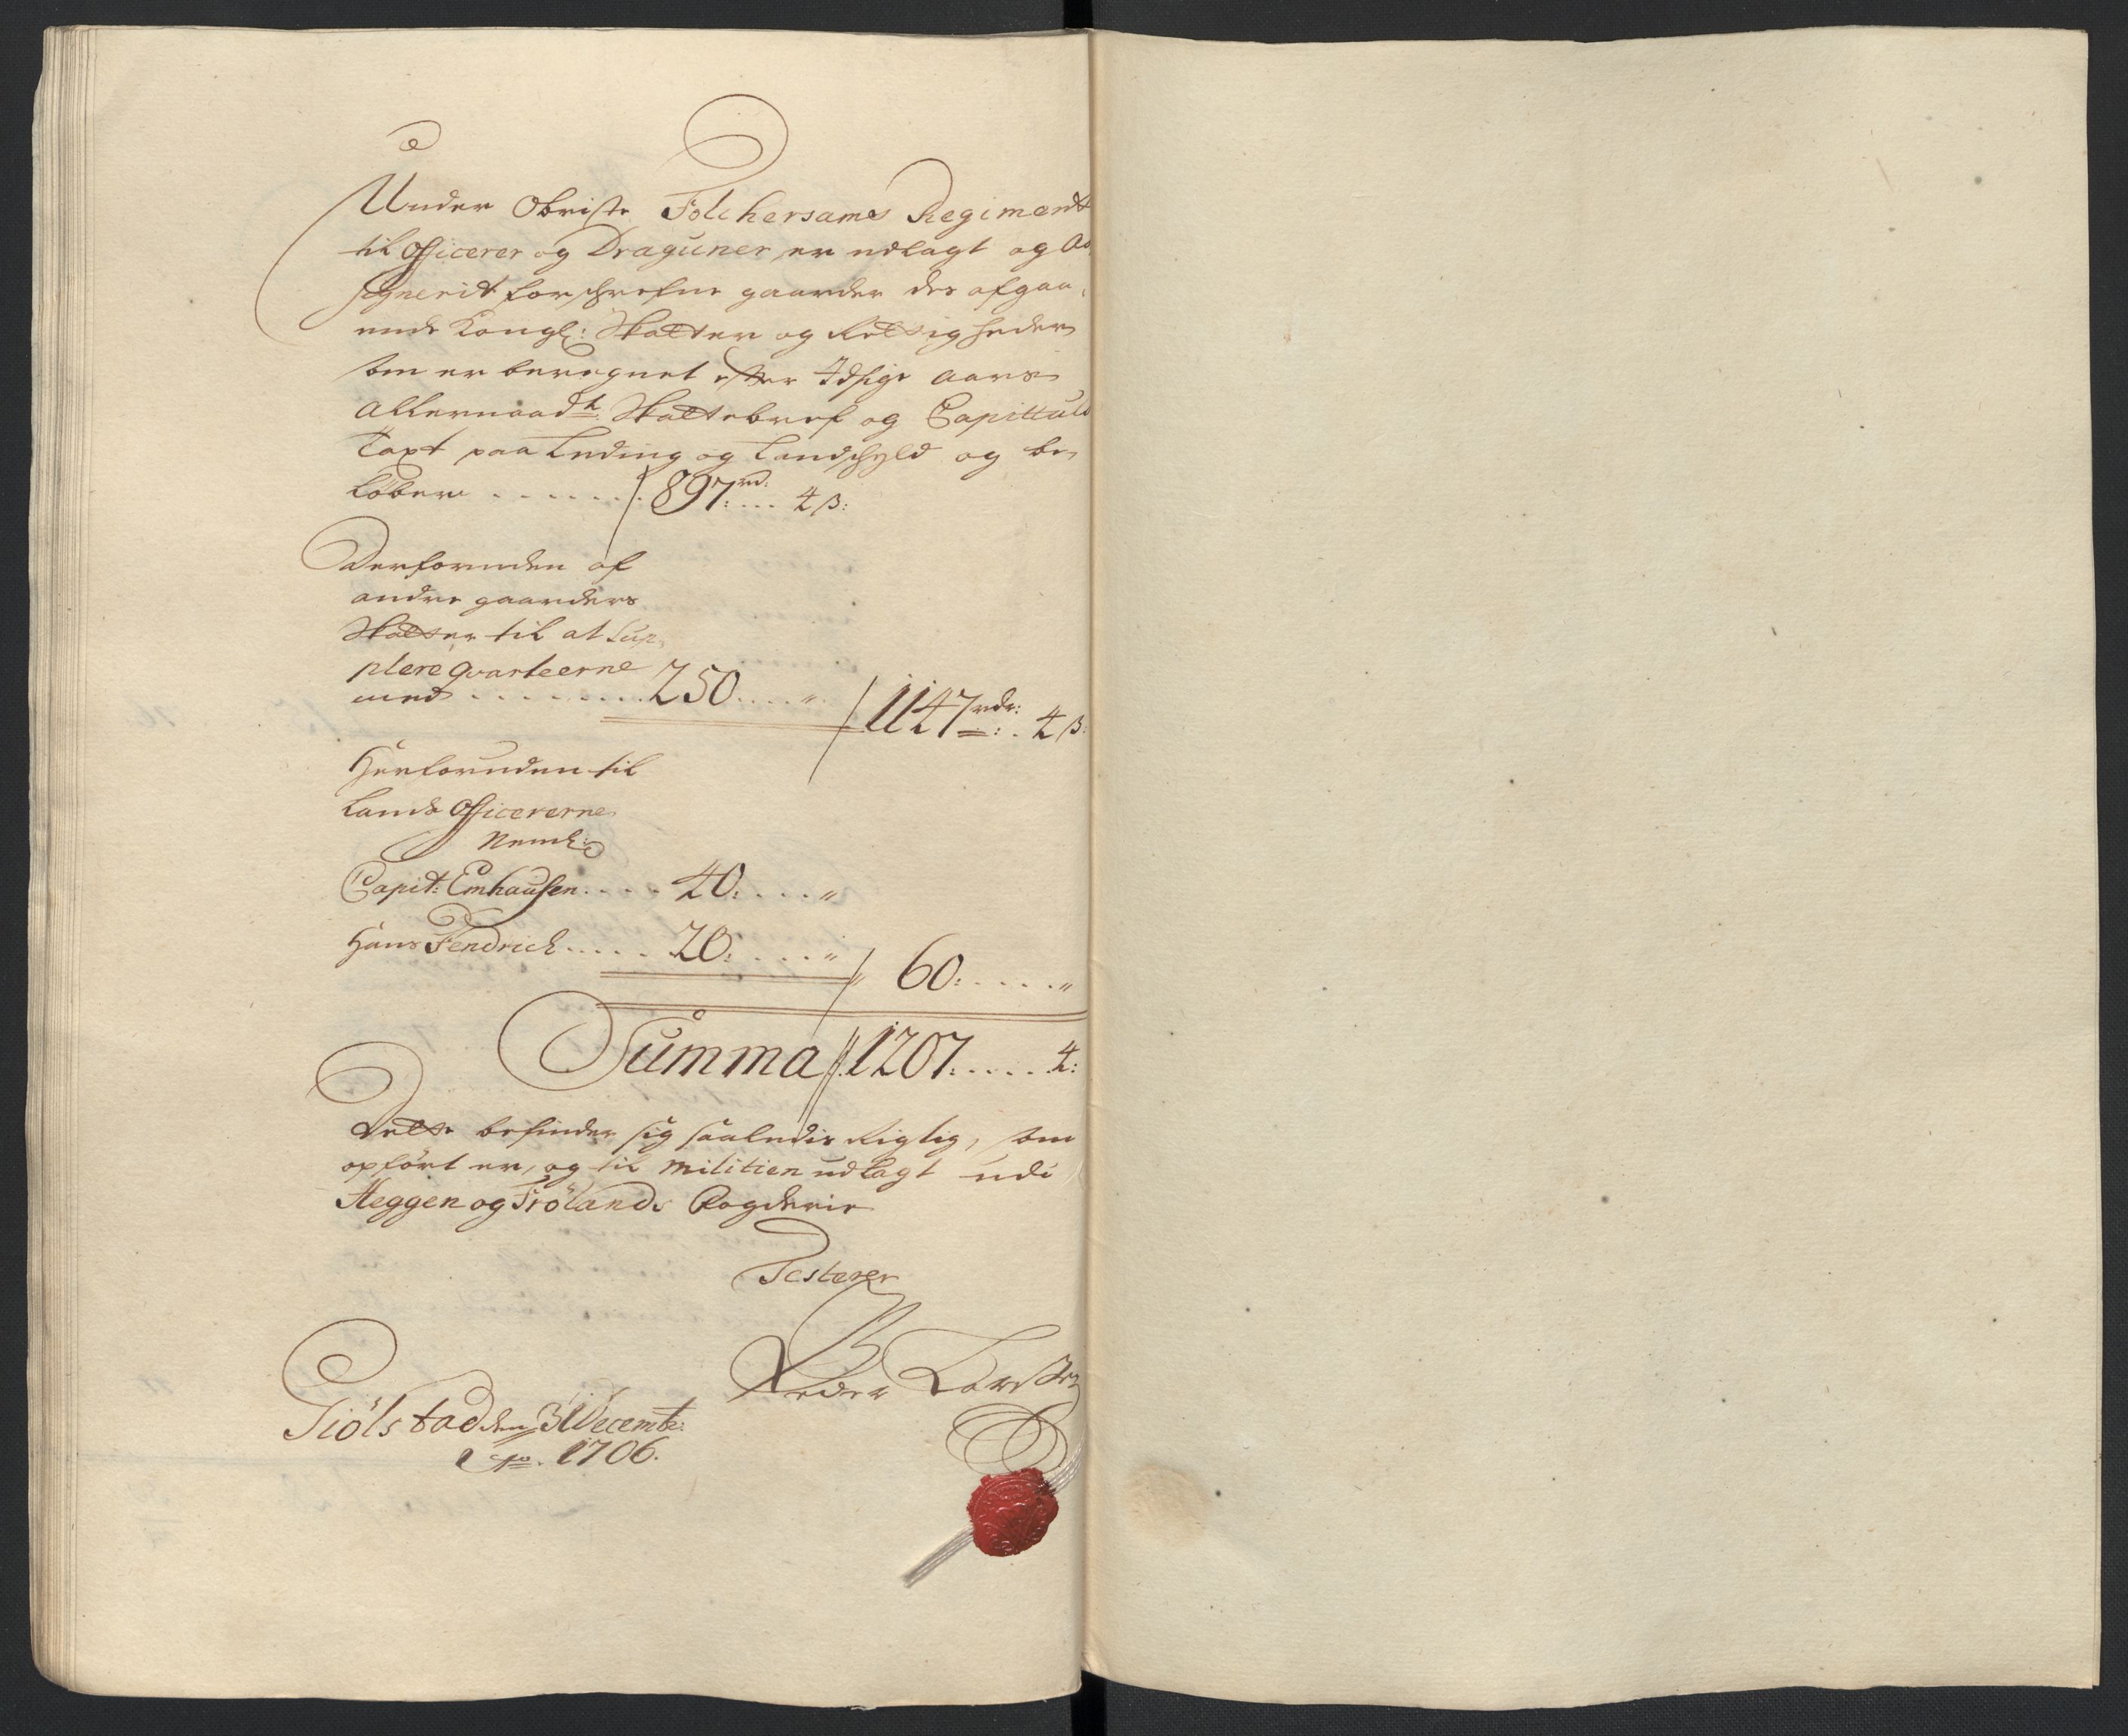 Under Obriste Folchersams Regimendt
til Officerer og Draguner er udlagt og As,
signerit forschrefne gaarder des afgaa,
ende Kongl: Skatter og Rettigheder
som er beregnet efter Idsige aars
allernaadl: Skattebref og Capittuls
Taxt paa Leding og Landschyld og be,
løber . . . . . . . 897 rd: . . . 4 β:
Derforuden af
andre gaarders
Skatter til at Sup,
plere qvarteerne
med . . . . . . . . . 250 . . . . " 1147 rdr: . 4 β:
Herforuden til
Lands Officererne
Neml:
Capit: Emhausen . . . . 40: . . . . "
Hans Fendrich . . . . . 20: . . . . " 60: . . . . . "
Summa 1207: . . . . . 4:
Dette befindes sig saaledis Rigtig, som
opført er, og til Militien udlagt udi
Heggen og Frølands Fogderie
Testerer
Peder Larsen
Giølstad den 31 Decembr:
Ao. 1706.